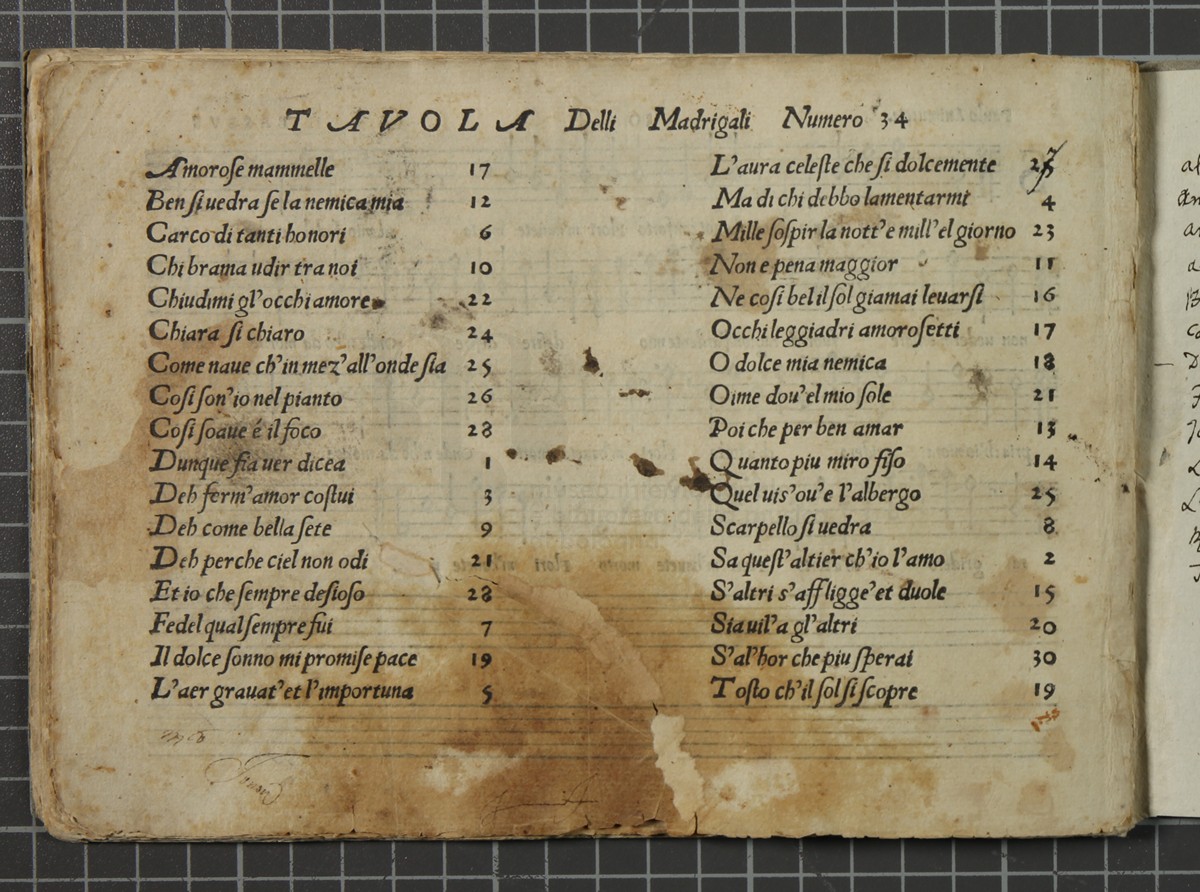 TAVOLA Delli Madrigali Numero 34
Amorose mammelle 17
Ben si uedra se la nemica mia 12
Carco di tanti honori 6
Chi brama udir tra noi 10
Chiudimi gl'occhi amore 22
Chiara si chiaro 24
Come naue ch'in mez'all'onde sia 25
Cosi son'io nel pianto 26
Cosi soaue é il foco 28
Dunque fia uer dicea 1
Deh ferm'amor costui 3
Deh come bella sete 9
Deh perche ciel non odi 21
Et io che sempre desioso 28
Fedel qual sempre fui 7
Il dolce sonno mi promise pace 19
L'aer grauat'et l'importuna 5
L'aura celeste che si dolcemente
Ma di chi debbo lamentarmi 4
Mille sospir la nott'e mill'el giorno 23
Non e pena maggior 11
Ne cosi bel il sol giamai leuarsi 16
Occhi leggiadri amorosetti 17
O dolce mia nemica 18
Oime dou'el mio sole 21
Poi che per ben amar 13
Quanto piu miro fiso 14
Quel uis'ou'e l'albergo 25
Scarpello si uedra 8
Sa quest'altier ch'io l'amo 2
S'altri s'affligge'et duole 15
Sia uil'a gl'altri 20
S'al'hor che piu sperai 30
Tosto ch'il sol si scopre 19